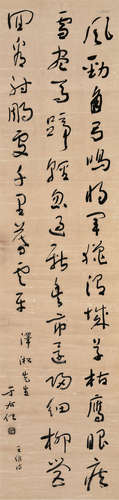 風勁角弓鳴將軍獵渭城草枯鷹眼疾
雪盡馬蹄輕忽過新豐市還歸細柳營
回看射鵰處千里暮雲平
先生
王維詩
于右任